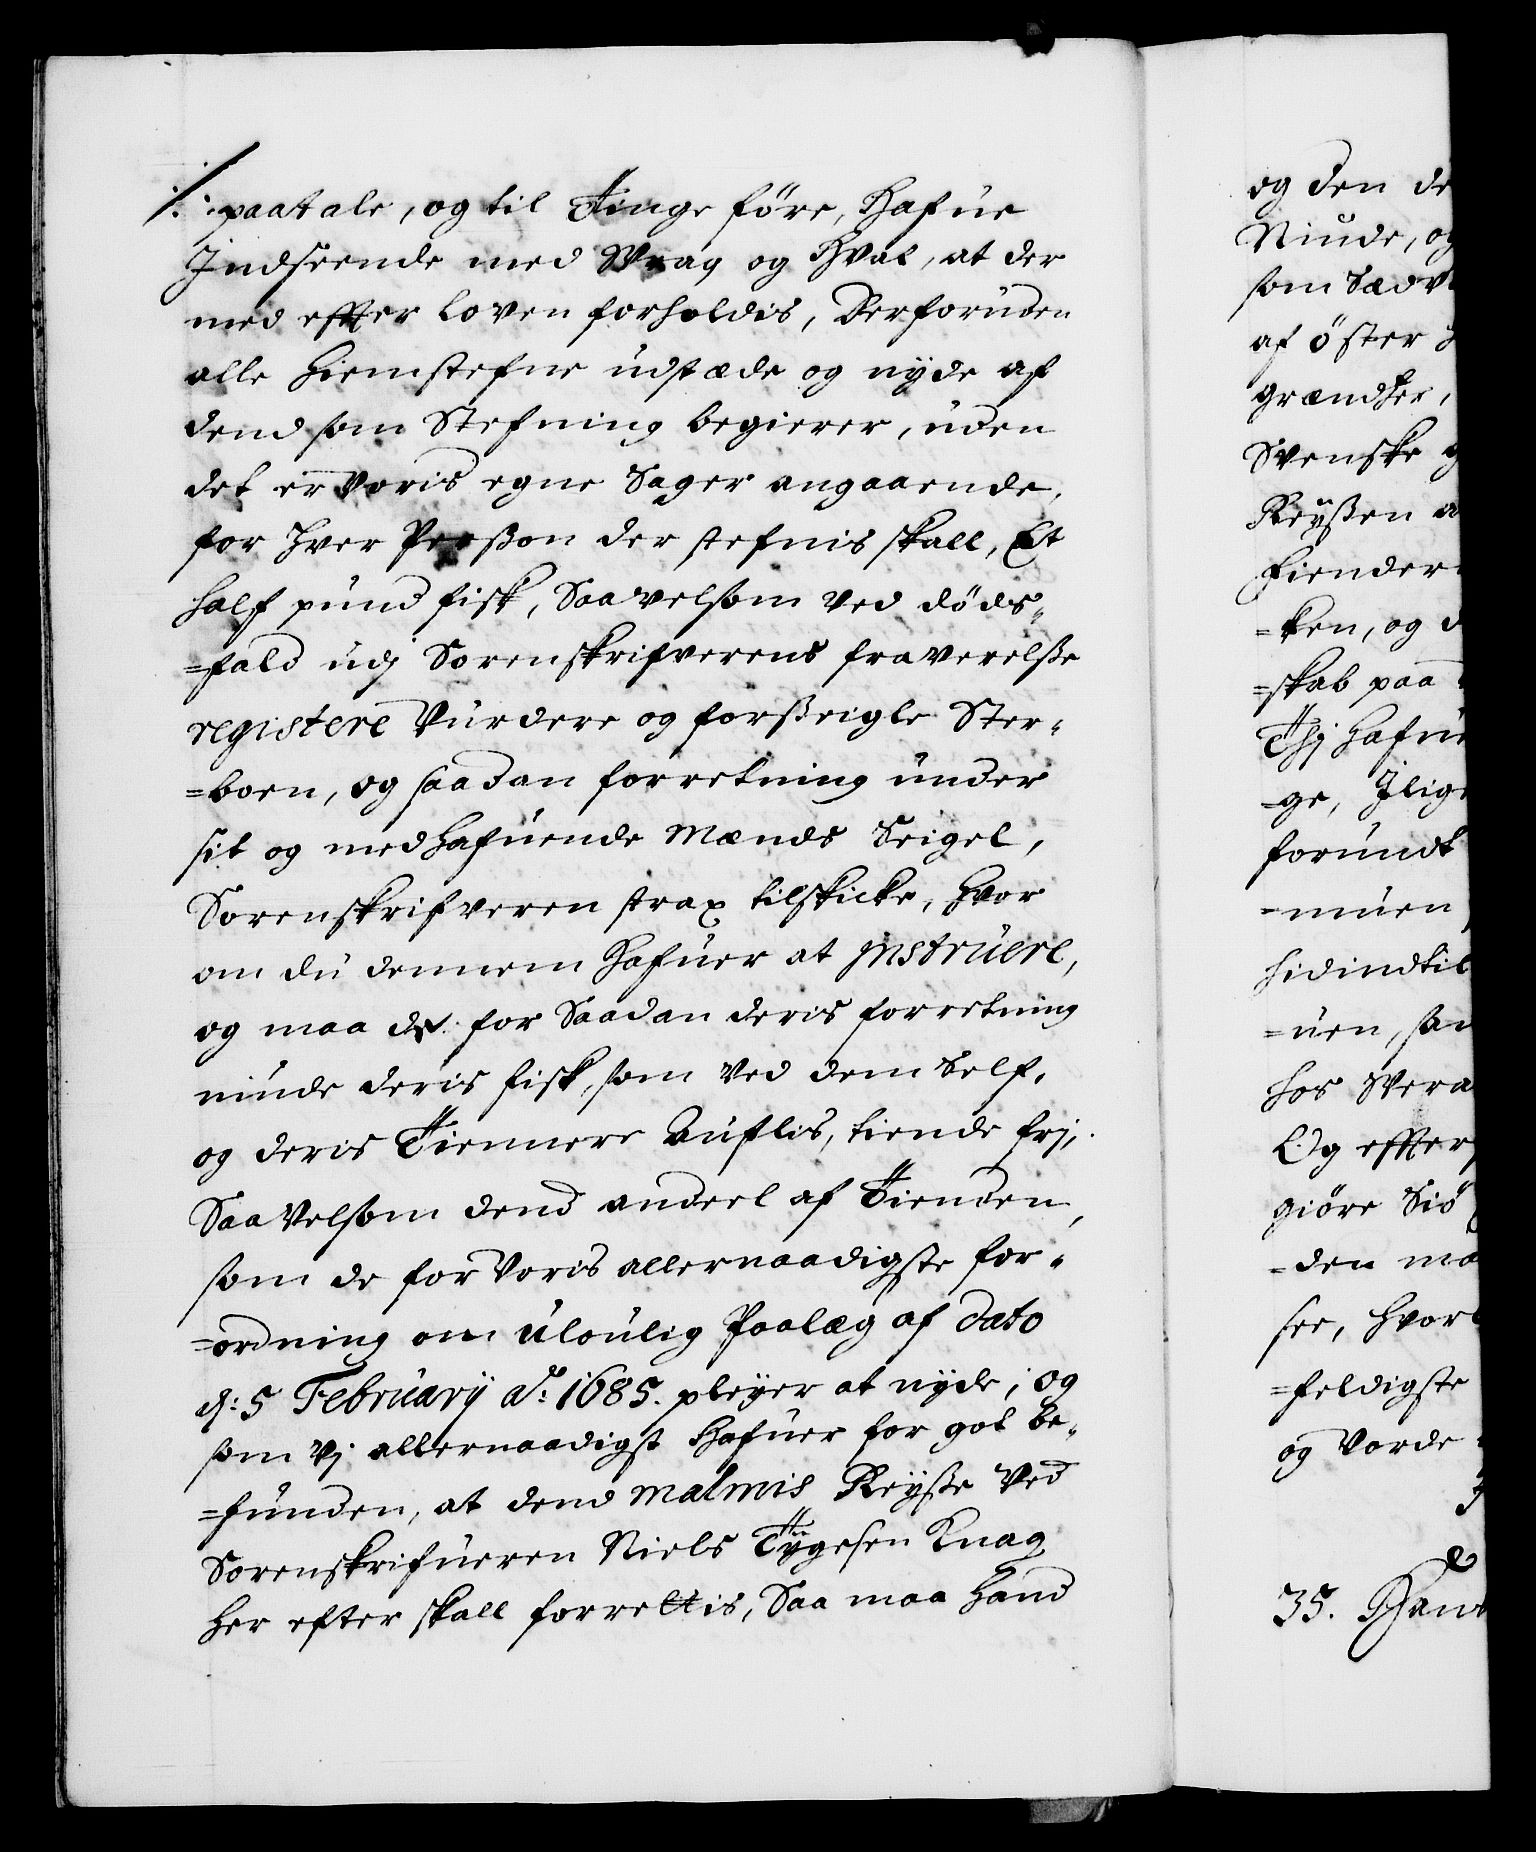 paatale, og til Tinge føre, Hafue
Indseende med Vrag og Hval, at der
med effter Loven forholdis, Derforuden
alle Hiemstefne udstæde og nyde af
dend som Stefning begierer, uden
det er Voris egne Sager angaaende,
for Hver Persson der stefnis skall, Et
half pund fisk, Saavelsom ved døds-
=fald udj Sorenskrifverens fraverelsse
registere Vurdere og forsseigle Ster-
=boen, og saadan forretning under
sit og medhafuende Mænds Seigel,
Sorenskrifveren strax tilskicke, Hvor
om du dennem Hafuer at instruere,
og maa de for Saadan deris forretning
niude deris fisk, som ved dem Self,
og deris Tiennere Auflis, tiende frj,
Saa Velsom dend andeel af Tienden,
som de for Voris allernaadigste for-
=ordning om uloulig Paalæg af dato
d: 5 Februarij Ao: 1685. pleyer at nyde; og
som Vj allernaadigst Hafuer for got be-
=funden, at dend Malmis Reysse Ved
Sorenskrifueren Niels Tygesen Knag
Her efter skall forrettis, Saa maa Hand
og den de
Niude, og
som Sædv
af Øster
grændser,
Svenske
Reyssen a
fiender
=ken, og d
=skab paa
Thj Hafue
=ge, Jlige
forundt
=muen
hidindtil
=uen, sa
hos Vera
Og effter
giøre Siø
=den ma
see, Hvor
=feldigste
og Vorde
35. Hans